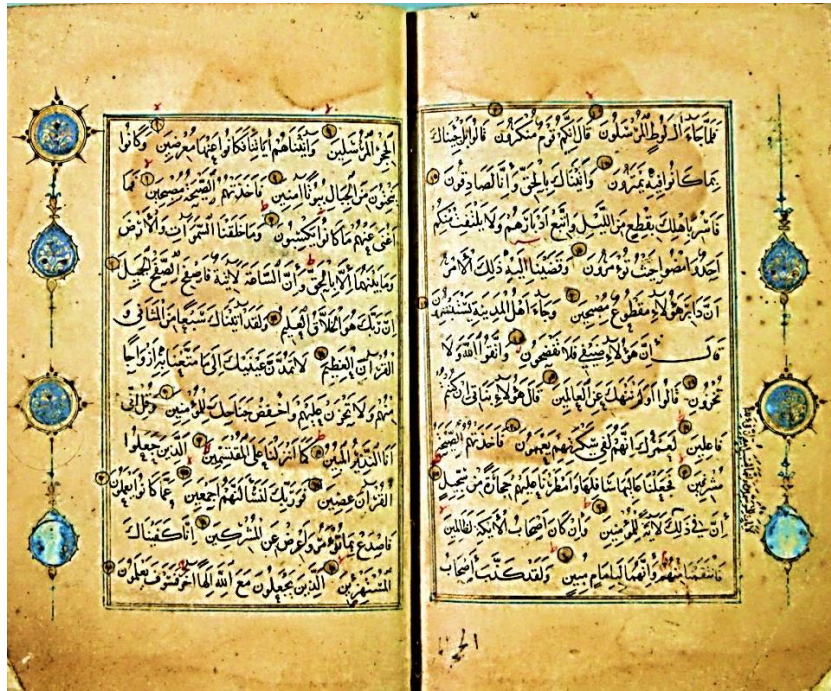 فلما جاء آل لوط المرسلون قال إنكم قوم منكرون قالوا بل جئناك
بما كانوا فيه يمترون وأتيناك بالحق وإنا لصادقون
فأسر بأهلك بقطع من الليل واتبع أدبارهم ولا يلتفت منكم
أحد وامضوا حيث تؤمرون وقضينا إليه ذلك الأمر
أن دابر هؤلاء مقطوع مصبحين وجاء أهل المدينة يستبشرون
قال إن هؤلاء ضيفي فلا تفضحون واتقوا الله ولا
تخزون قالوا أولم ننهك عن العالمين قال هؤلاء بناتي إن كنتم
فاعلين لعمرك إنهم لفي سكرتهم يعمهون فأخذتهم الصيحة
مشرقين فجعلنا عاليها سافلها وأمطرنا عليهم حجارة من سجيل
إن في ذلك لآية للمؤمنين وإن كان أصحاب الأيكة لظالمين
فانتقمنا منهم وإنهما لبإمام مبين ولقد كذب أصحاب
الحجر
الحجر المرسلين وآتيناهم آياتنا فكانوا عنها معرضين وكانوا
ينحتون من الجبال بيوتا آمنين فأخذتهم الصيحة مصبحين فما
أغنى عنهم ما كانوا يكسبون وما خلقنا السموات والأرض
وما بينهما إلا بالحق وإن الساعة لآتية فاصفح الصفح الجميل
إن ربك هو الخلاق العليم ولقد آتيناك سبعا من المثاني و
القرآن العظيم لا تمدن عينيك إلى ما متعنا به أزواجا
منهم ولا تحزن عليهم واخفض جناحك للمؤمنين وقل إني
أنا النذير المبين كما أنزلنا على المقتسمين الذين جعلوا
القرآن عضين فوربك لنسألنهم أجمعين عما كانوا يعملون
فاصدع بما تؤمر وأعرض عن المشركين إنا كفيناك
المستهزئين الذين يجعلون مع الله إلها آخر فسوف يعلمون